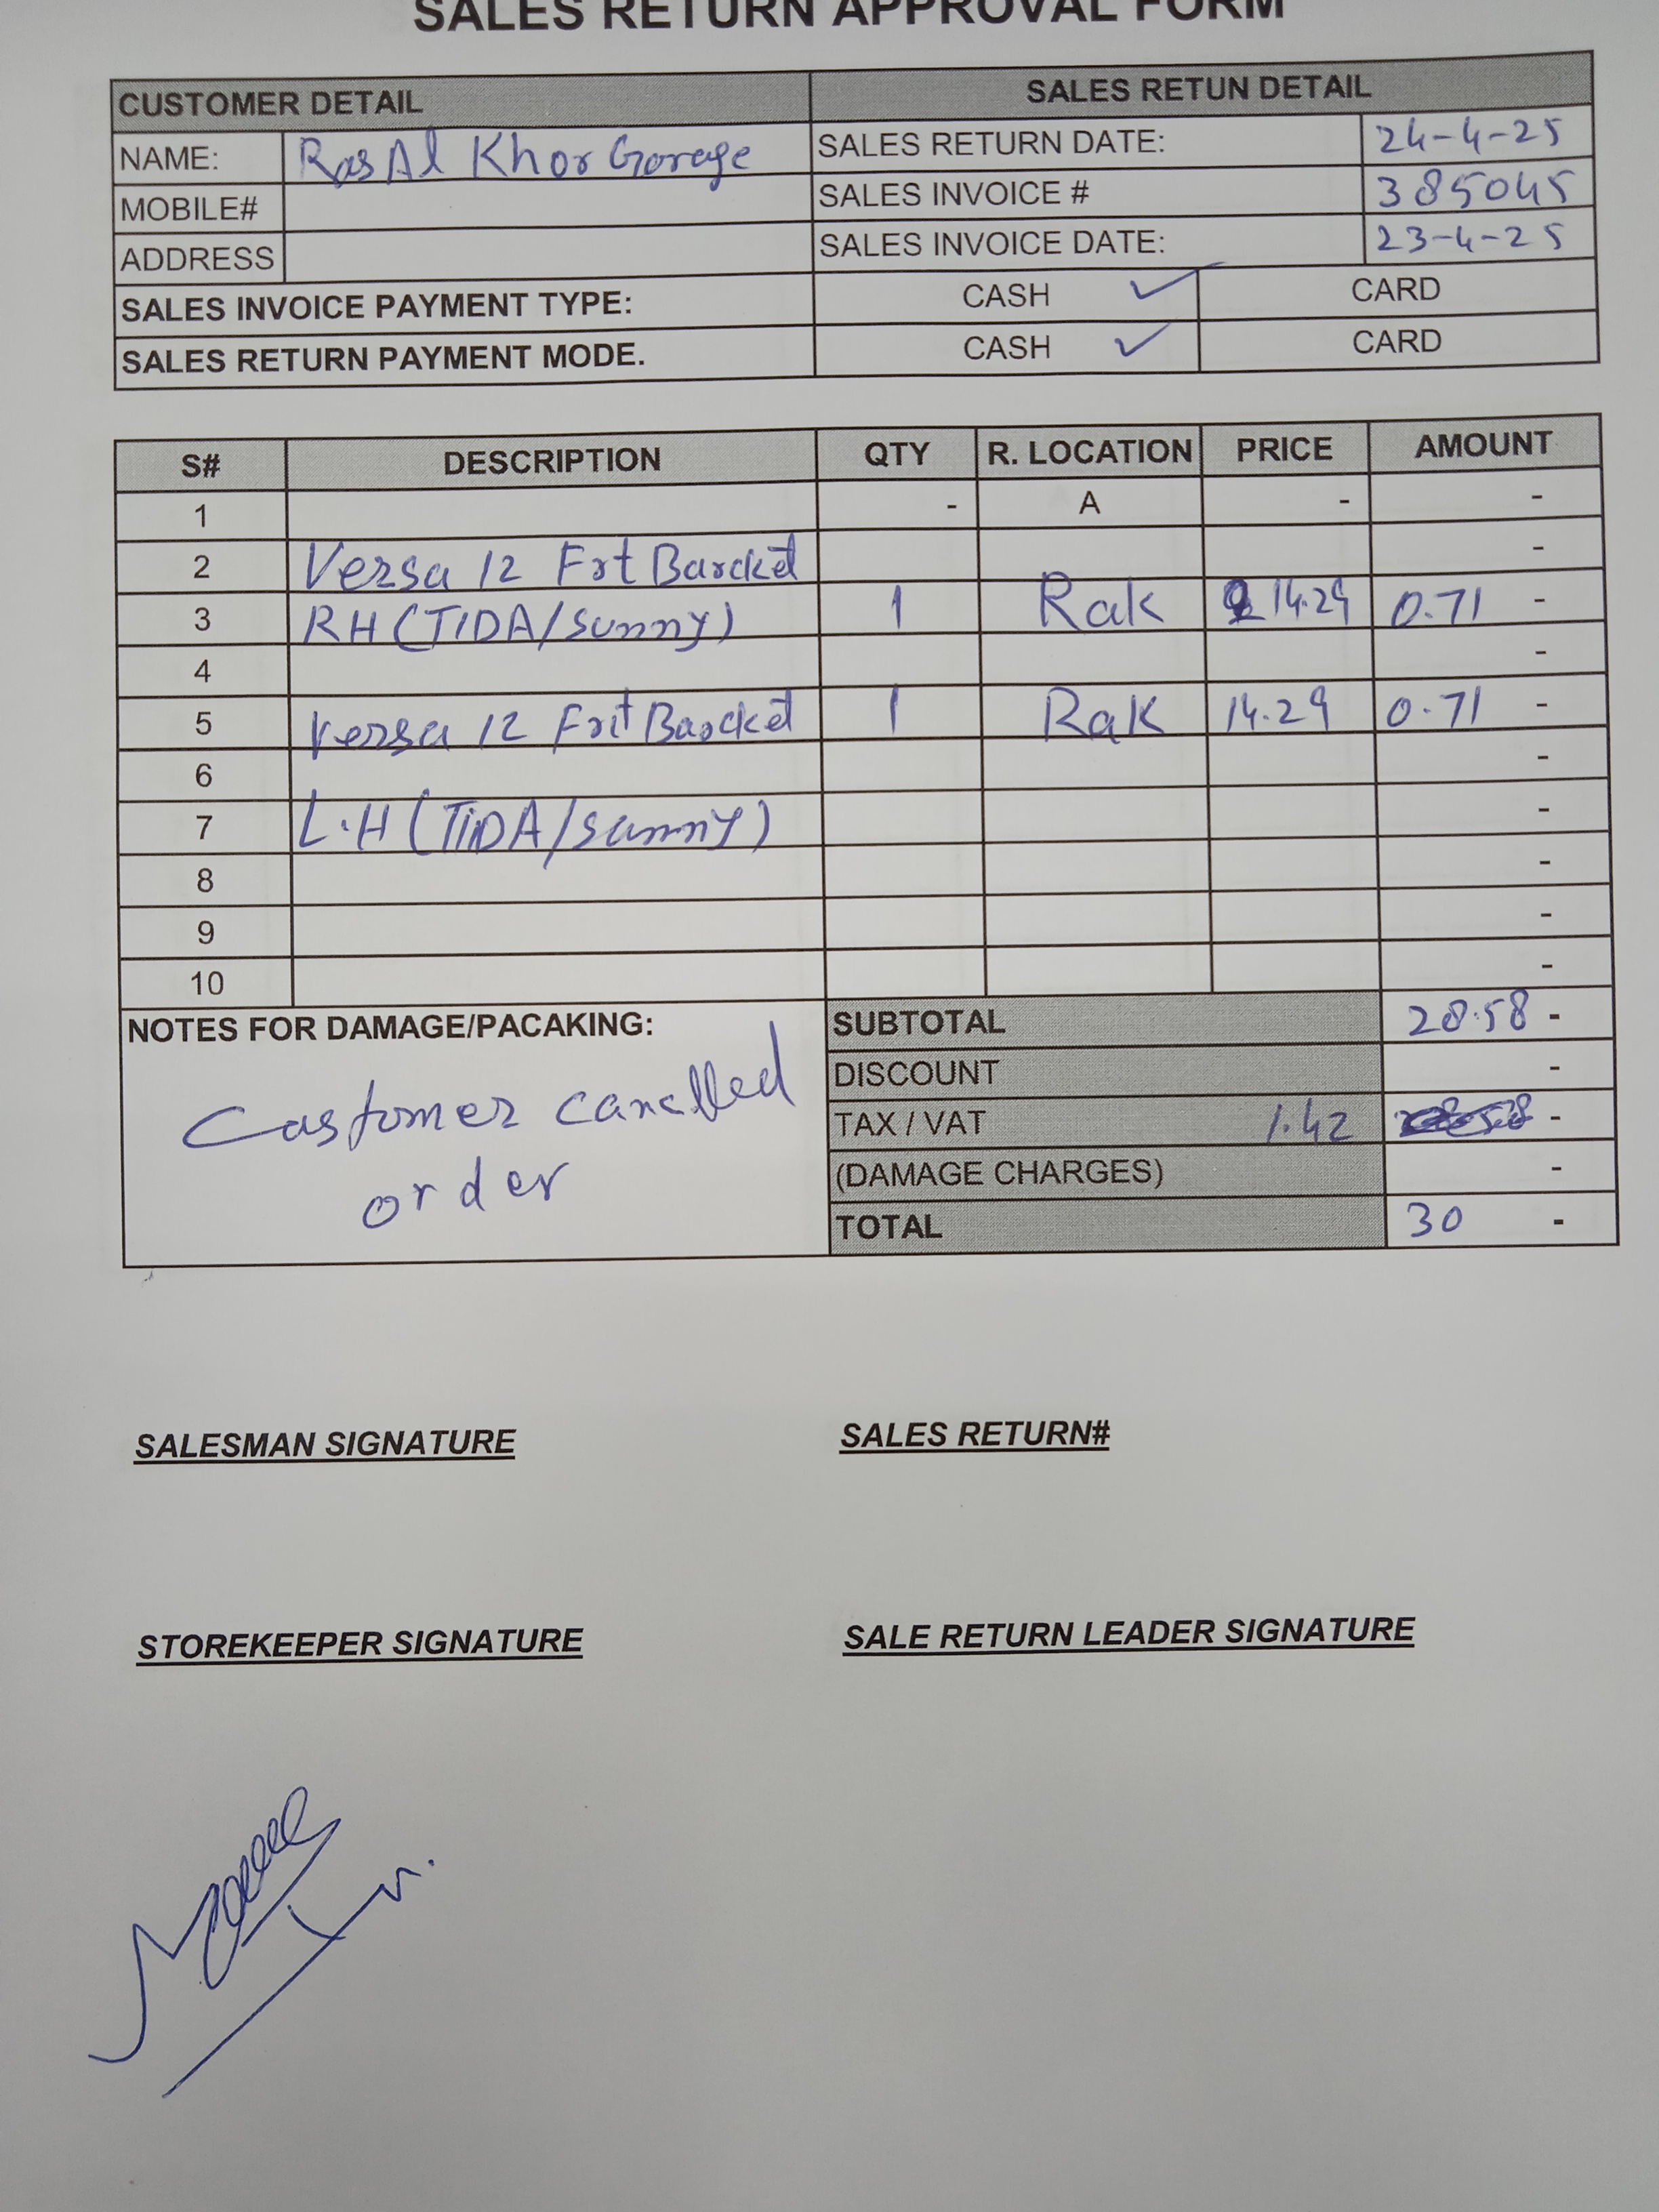 SALES RETURN APPROVAL FORM
CUSTOMER DETAIL SALES RETUN DETAIL
NAME: Ras Al Khor Gorege SALES RETURN DATE: 24-4-25
MOBILE# SALES INVOICE # 385045
ADDRESS SALES INVOICE DATE: 23-4-25
SALES INVOICE PAYMENT TYPE: CASH ✓ CARD
SALES RETURN PAYMENT MODE. CASH ✓ CARD
S# DESCRIPTION QTY R. LOCATION PRICE AMOUNT
1 - A - -
2 Versa 12 Frt Barcket -
3 RH (TIDA/Sunny) 1 Rak 14.29 0.71 -
4 -
5 Versa 12 Frt Barcket 1 Rak 14.29 0.71 -
6 -
7 L.H (TIDA/Sunny) -
8 -
9 -
10 -
NOTES FOR DAMAGE/PACAKING:
Castomer cancelled
order
SUBTOTAL 28.58 -
DISCOUNT -
TAX / VAT 1.42 -
(DAMAGE CHARGES) -
TOTAL 30 -
SALESMAN SIGNATURE SALES RETURN#
STOREKEEPER SIGNATURE SALE RETURN LEADER SIGNATURE